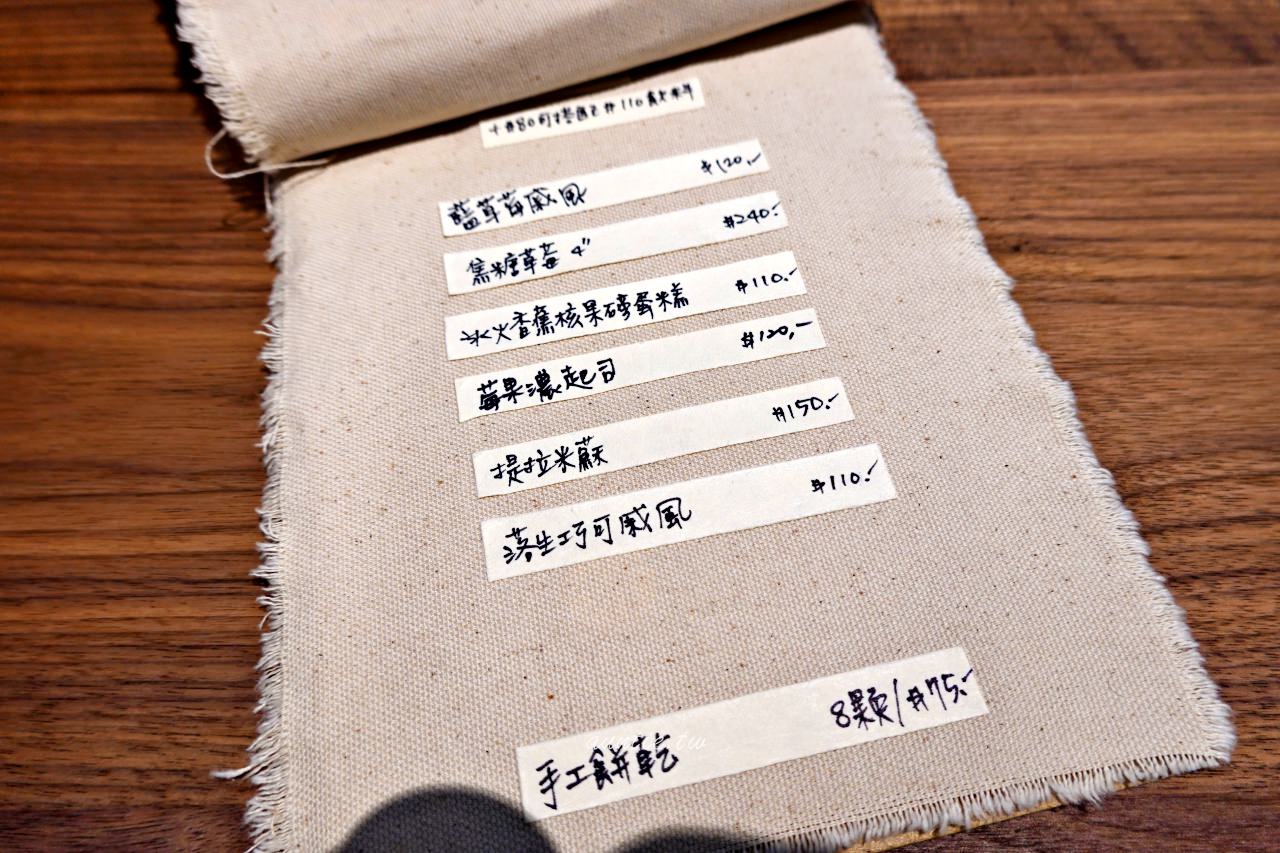 +$80可搭配$110飲料
藍草莓戚風 $120.-
焦糖草莓 4" $240.-
冰火香蕉核果磅蛋糕 $110.-
莓果濃起司 $120.-
提拉米蘇 $150.-
落生巧可戚風 $110.-
手工餅乾 8顆/$75.-